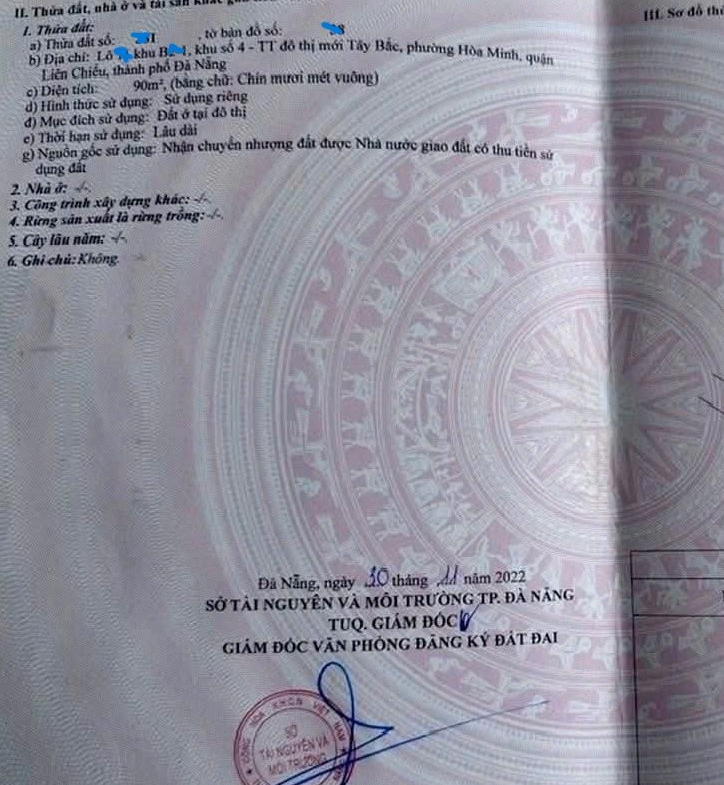 II. Thửa đất, nhà ở và tài sản khác
III. Sơ đồ
1. Thửa đất:
a) Thửa đất số: , tờ bản đồ số:
b) Địa chỉ: Lô khu , khu số 4 - TT đô thị mới Tây Bắc, phường Hòa Minh, quận
Liên Chiểu, thành phố Đà Nẵng
c) Diện tích: 90m², (bằng chữ: Chín mươi mét vuông)
d) Hình thức sử dụng: Sử dụng riêng
đ) Mục đích sử dụng: Đất ở tại đô thị
e) Thời hạn sử dụng: Lâu dài
g) Nguồn gốc sử dụng: Nhận chuyển nhượng đất được Nhà nước giao đất có thu tiền sử
dụng đất
2. Nhà ở: -/-.
3. Công trình xây dựng khác: -/-.
4. Rừng sản xuất là rừng trồng: -/-.
5. Cây lâu năm: -/-.
6. Ghi chú: Không.
Đà Nẵng, ngày 30 tháng 11 năm 2022
SỞ TÀI NGUYÊN VÀ MÔI TRƯỜNG TP. ĐÀ NẴNG
TUQ. GIÁM ĐỐC
GIÁM ĐỐC VĂN PHÒNG ĐĂNG KÝ ĐẤT ĐAI
SỞ
TÀI NGUYÊN VÀ
MÔI TRƯỜNG